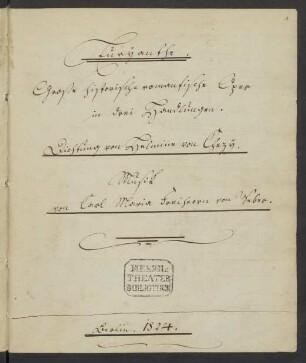 Euryanthe.
Große historisch romantische Oper
in drei Handlungen.
Dichtung von Helmine von Chezy.
Musik
von Carl Maria Freiherrn von Weber.
KOENIGL:
THEATER
BIBLIOTHEK
Berlin. 1824.